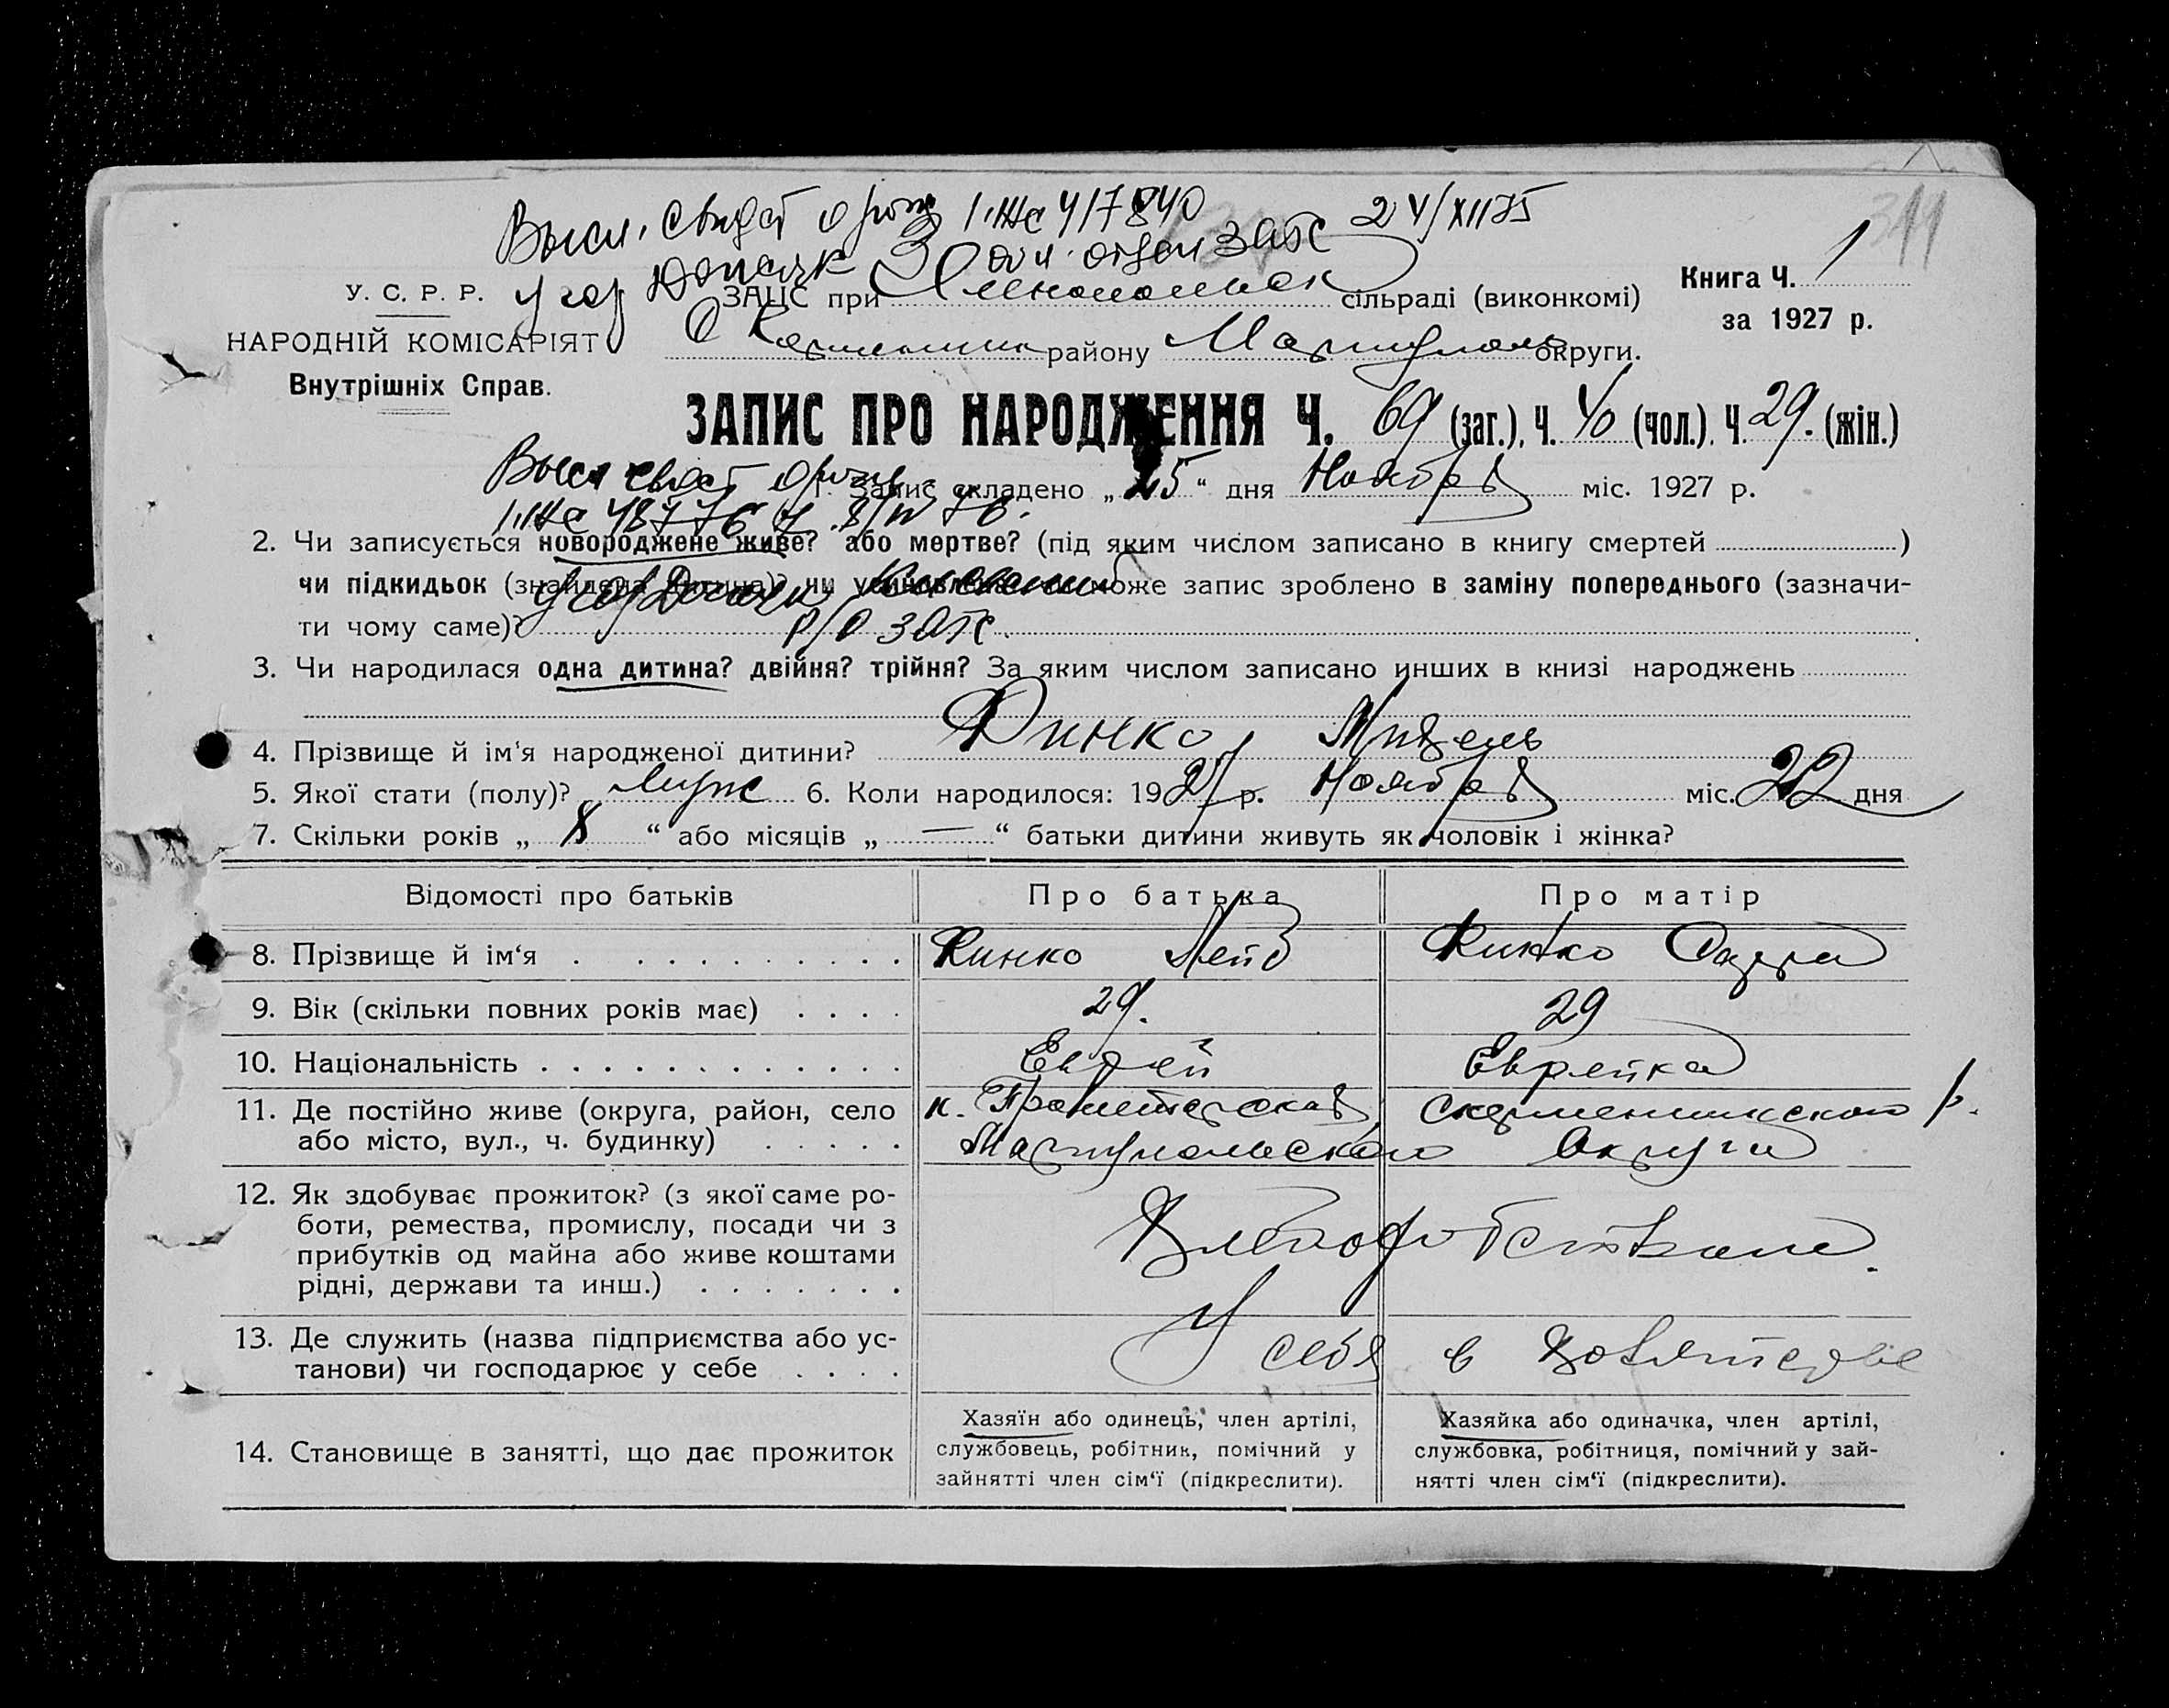 Высл. свидет о рожд I-ЖС 417840 24/XII 75
У. С. Р. Р.
у гор Донецк обл. отдел ЗАГС
ЗАЦС при сільраді (виконкомі)
Книга Ч. 1
за 1927 р.
НАРОДНІЙ КОМІСАРІЯТ
району Мариуполь округи.
Внутрішніх Справ.
ЗАПИС ПРО НАРОДЖЕННЯ Ч. 69 (заг.), Ч. 40 (чол.), Ч. 29. (жін.)
Высл свид о рожд
1. Запис складено „ 25 “ дня Ноября міс. 1927 р.
2. Чи записується новороджене живе? або мертве? (під яким числом записано в книгу смертей )
чи підкидьок (знайдена дитина)? чи може запис зроблено в заміну попереднього (зазначи-
ти чому саме)? р/о загс.
3. Чи народилася одна дитина? двійня? трійня? За яким числом записано инших в книзі народжень
4. Прізвище й ім‘я народженої дитини? Финко
5. Якої стати (полу)? муж 6. Коли народилося: 1927 р. Ноября міс. 22 дня
7. Скільки років „ 8 “ або місяців „ — “ батьки дитини живуть як чоловік і жінка?
Відомості про батьків Про батька Про матір
8. Прізвище й ім‘я Финко Лейб Финко
9. Вік (скільки повних років має) 29. 29
10. Національність Еврей Еврейка
11. Де постійно живе (округа, район, село к. Пролетарская р.
або місто, вул., ч. будинку) Мариупольского Округа
12. Як здобуває прожиток? (з якої саме ро-
боти, ремества, промислу, посади чи з
прибутків од майна або живе коштами
рідні, держави та инш.)
13. Де служить (назва підприємства або ус-
танови) чи господарює у себе У себя в хозяйстве
Хазяїн або одинець, член артілі, Хазяйка або одиначка, член артілі,
14. Становище в занятті, що дає прожиток службовець, робітник, помічний у службовка, робітниця, помічний у зай-
зайнятті член сім‘ї (підкреслити). нятті член сім‘ї (підкреслити).